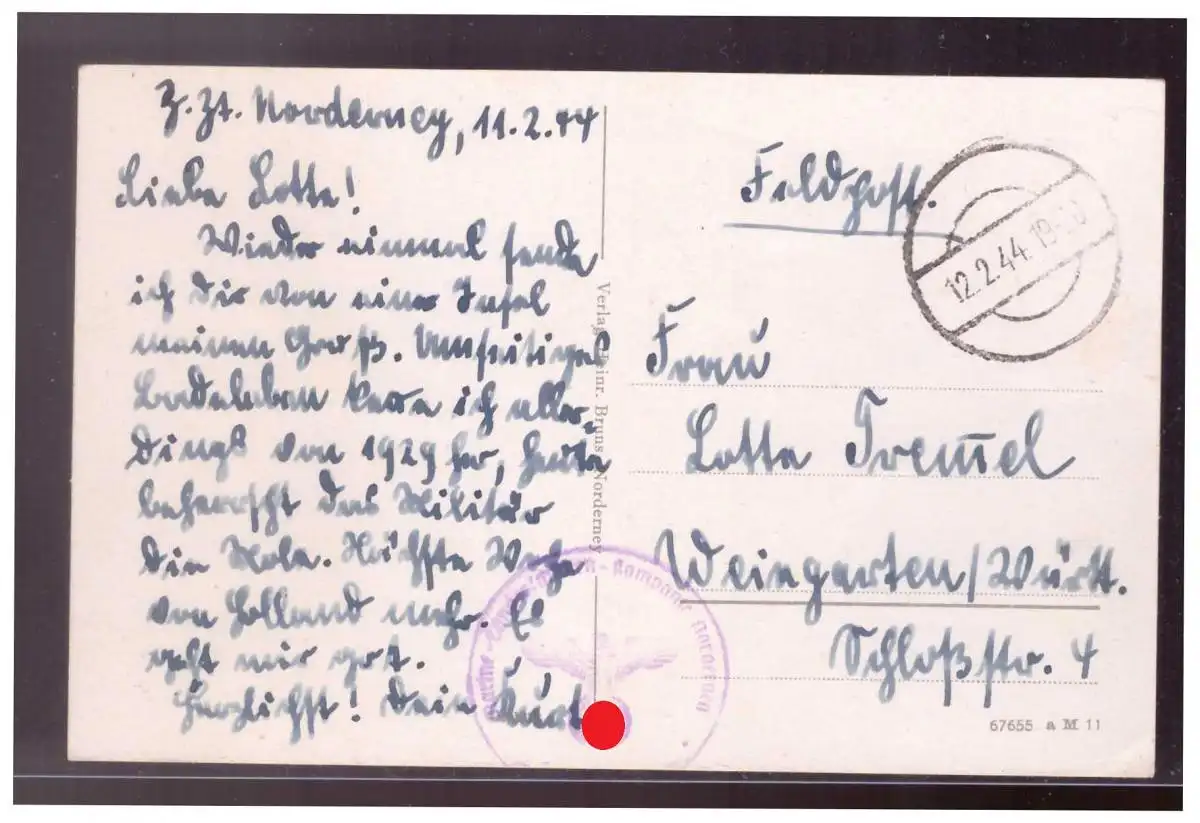 Z. Zt. Norderney, 11.2.44
Liebe Lotte!
Wieder einmal sende
ich Dir von einer Insel
meinen Gruß. Umseitiges
Badeleben kenne ich aller-
dings von 1929 her, heute
beherrscht das Militär
die Mole. Nächste Woche
von Holland mehr. Es
geht mir gut.
Herzlichst! Dein Kurt
Verlag Heinr. Bruns, Norderney
Feldpost.
12.2.44.19-
Frau
Lotte Tremel
Weingarten/Württ.
Schloßstr. 4
67655 a M 11
-Kompanie Norderney